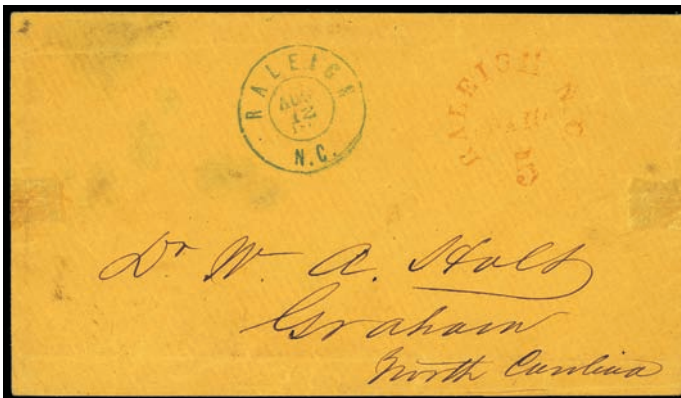 RALEIGH
AUG
12
N.C.
RALEIGH N.C
PAID
5
Dr W. A. Holt
Graham
North Carolina